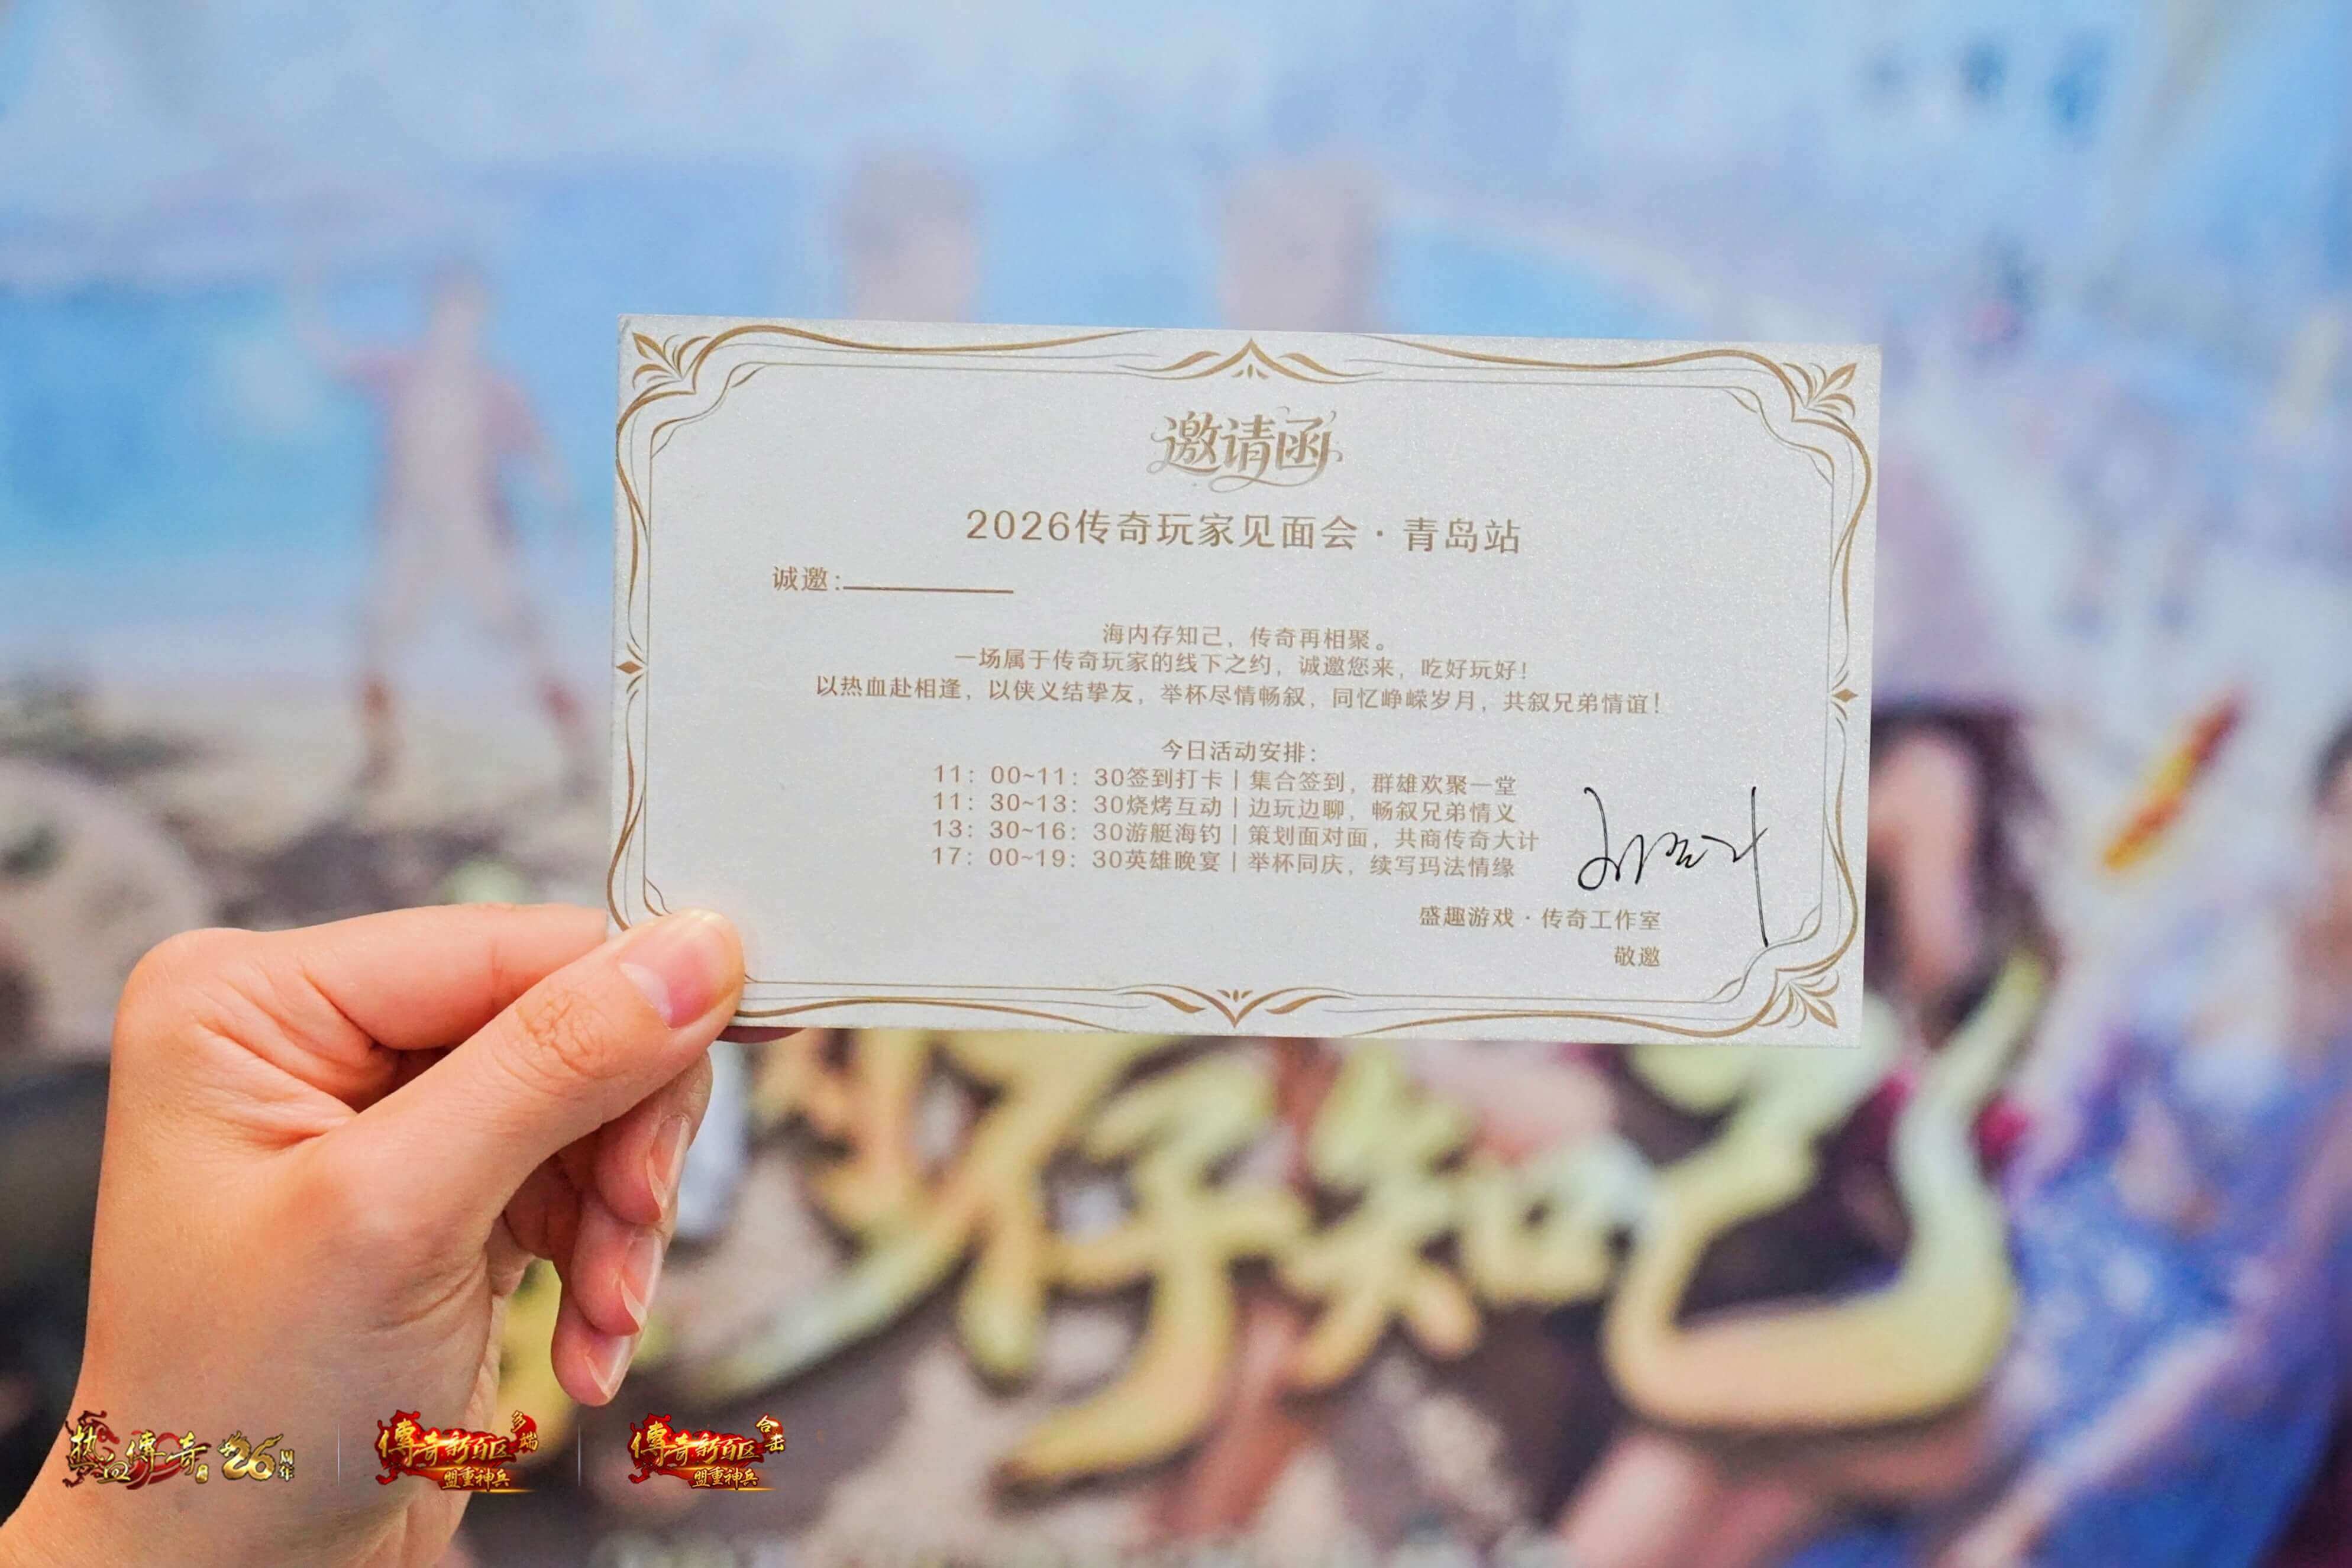 邀请函
2026传奇玩家见面会·青岛站
诚邀:
海内存知己，传奇再相聚。
一场属于传奇玩家的线下之约，诚邀您来，吃好玩好！
以热血赴相逢，以侠义结挚友，举杯尽情畅叙，同忆峥嵘岁月，共叙兄弟情谊！
今日活动安排：
11：00~11：30签到打卡丨集合签到，群雄欢聚一堂
11：30~13：30烧烤互动丨边玩边聊，畅叙兄弟情义
13：30~16：30游艇海钓丨策划面对面，共商传奇大计
17：00~19：30英雄晚宴丨举杯同庆，续写玛法情缘
盛趣游戏·传奇工作室
敬邀
存知己
热血傳奇 26周年
傳奇新百区 多端
盟重神兵
傳奇新百区 合击
盟重神兵